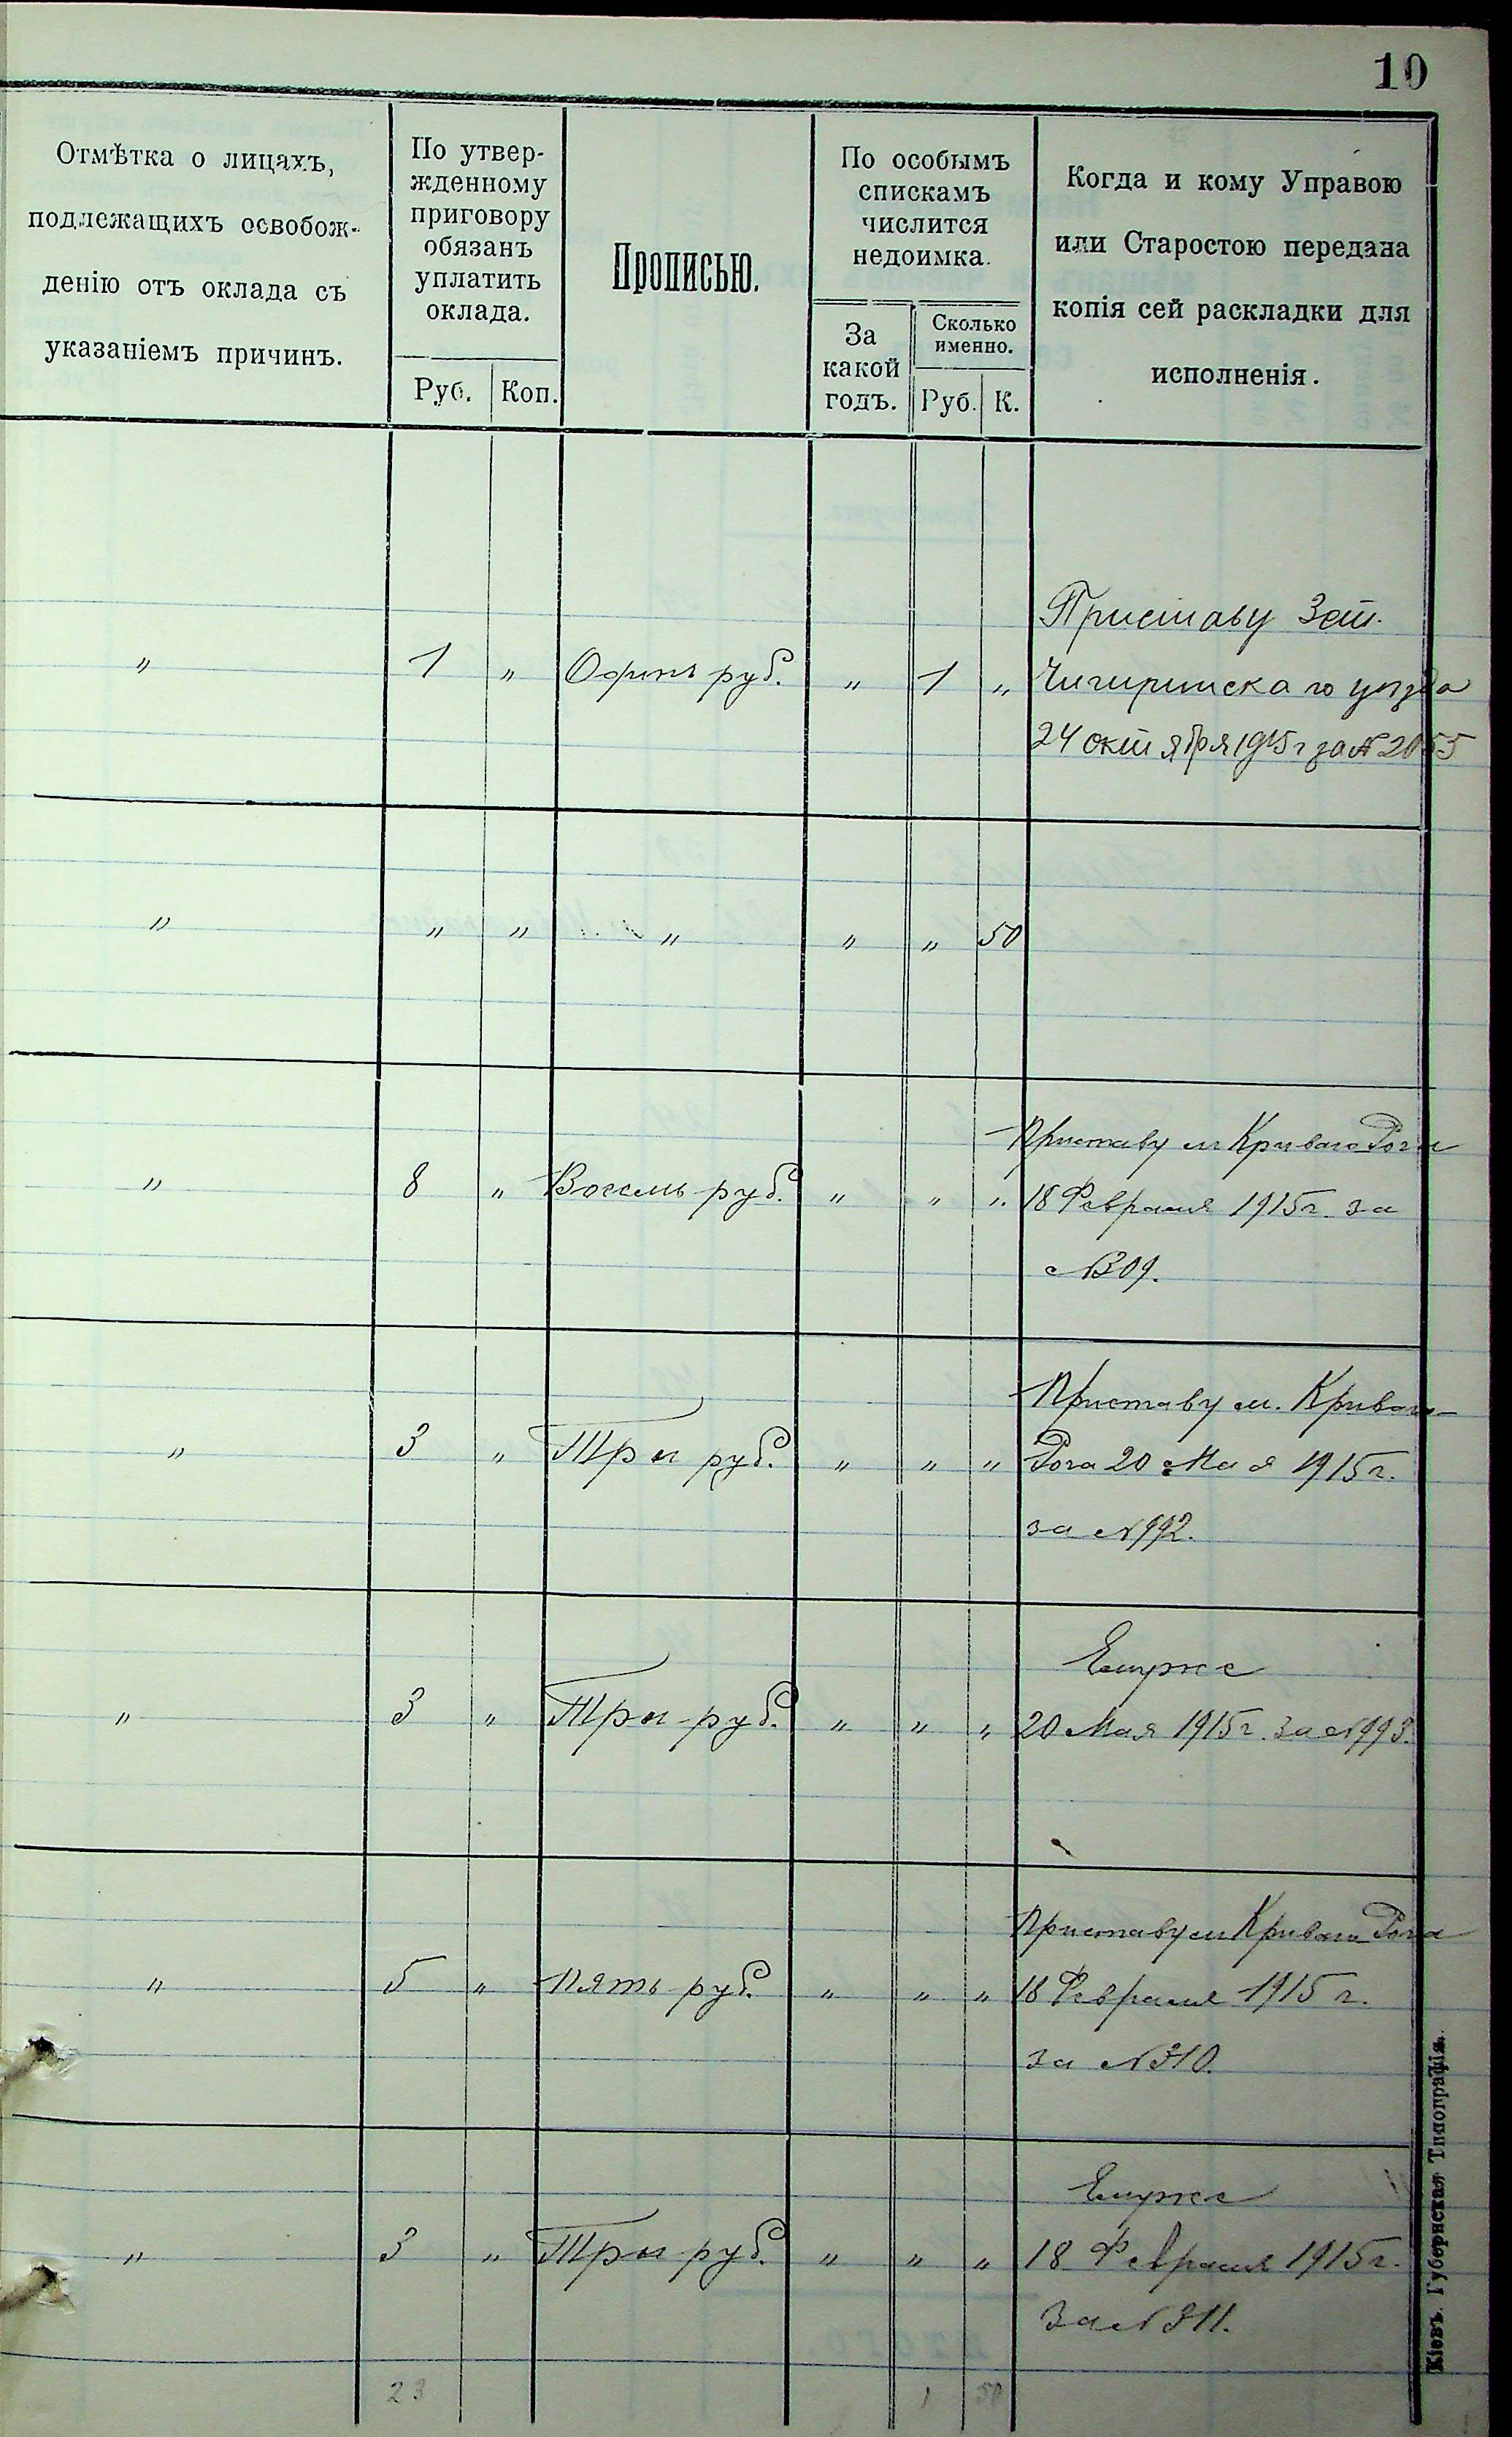 10
Отмѣтка о лицахъ,
подлежащихъ освобож-
денію отъ оклада съ
указаніемъ причинъ.
По утвер-
жденному
приговору
обязанъ
уплатить
оклада.
Руб. Коп.
Прописью.
По особымъ
спискамъ
числится
недоимка.
За
какой
годъ.
Сколько
именно.
Руб. К.
Когда и кому Управою
или Старостою передана
копія сей раскладки для
исполненія.
Приставу 3 ст.
" 1 " Одинъ руб. " 1 " Чигиринскаго уѣзда
24 октября 1915 г за № 2055
" " " " " " 50
Приставу м Кривого Рога
" 8 " Восемь руб. " " " 18 Февраля 1915 г. за
№ 309.
Приставу м. Кривого
" 3 " Три руб. " " " Рога 20 Мая 1915 г.
за № 992.
Емуже
" 3 " Три руб. " " " 20 Мая 1915 г. за № 993.
Приставу м Кривого Рога
" 5 " Пять руб. " " " 18 Февраля 1915 г.
за № 310.
Емуже
" 3 " Три руб. " " " 18 Февраля 1915 г.
За № 311.
23 1 50
Кіевъ. Губернская Типографія.